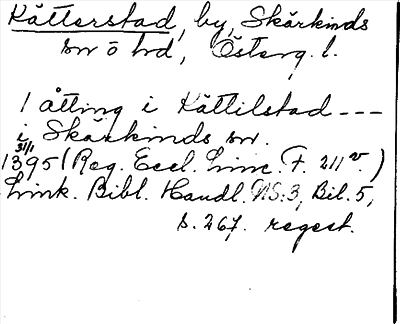 Kättorstad, by, Skärkinds
sn o hd, Österg. l.
1 åtting i Kättilstad ---
i Skärkinds sn.
31/1
1395 (Reg. Eccl. Linc. F. 211 v.)
Link. Bibl. Handl. NS:3, Bil. 5,
s. 267. regest.